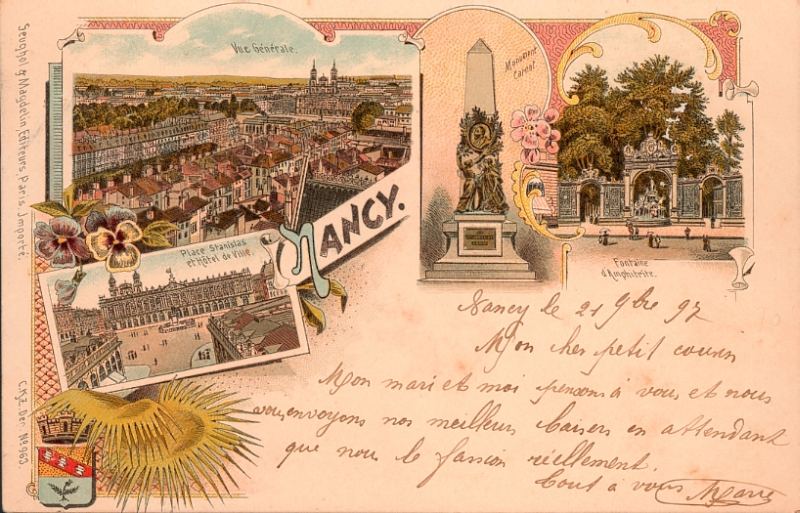 Vue Générale.
Monument
Carnot.
Fontaine
d'Amphitrite.
NANCY.
Place Stanislas
et Hôtel de Ville.
Seughol & Magdelin, Editeurs Paris. Importé.
C.Kz. Dep. No 963.
Nancy le 21 9bre 97
Mon cher petit cousin
Mon mari et moi pensons à vous et nous
vous envoyons nos meilleurs baisers en attendant
que nou le fassion réellement.
Tout à vous Marie